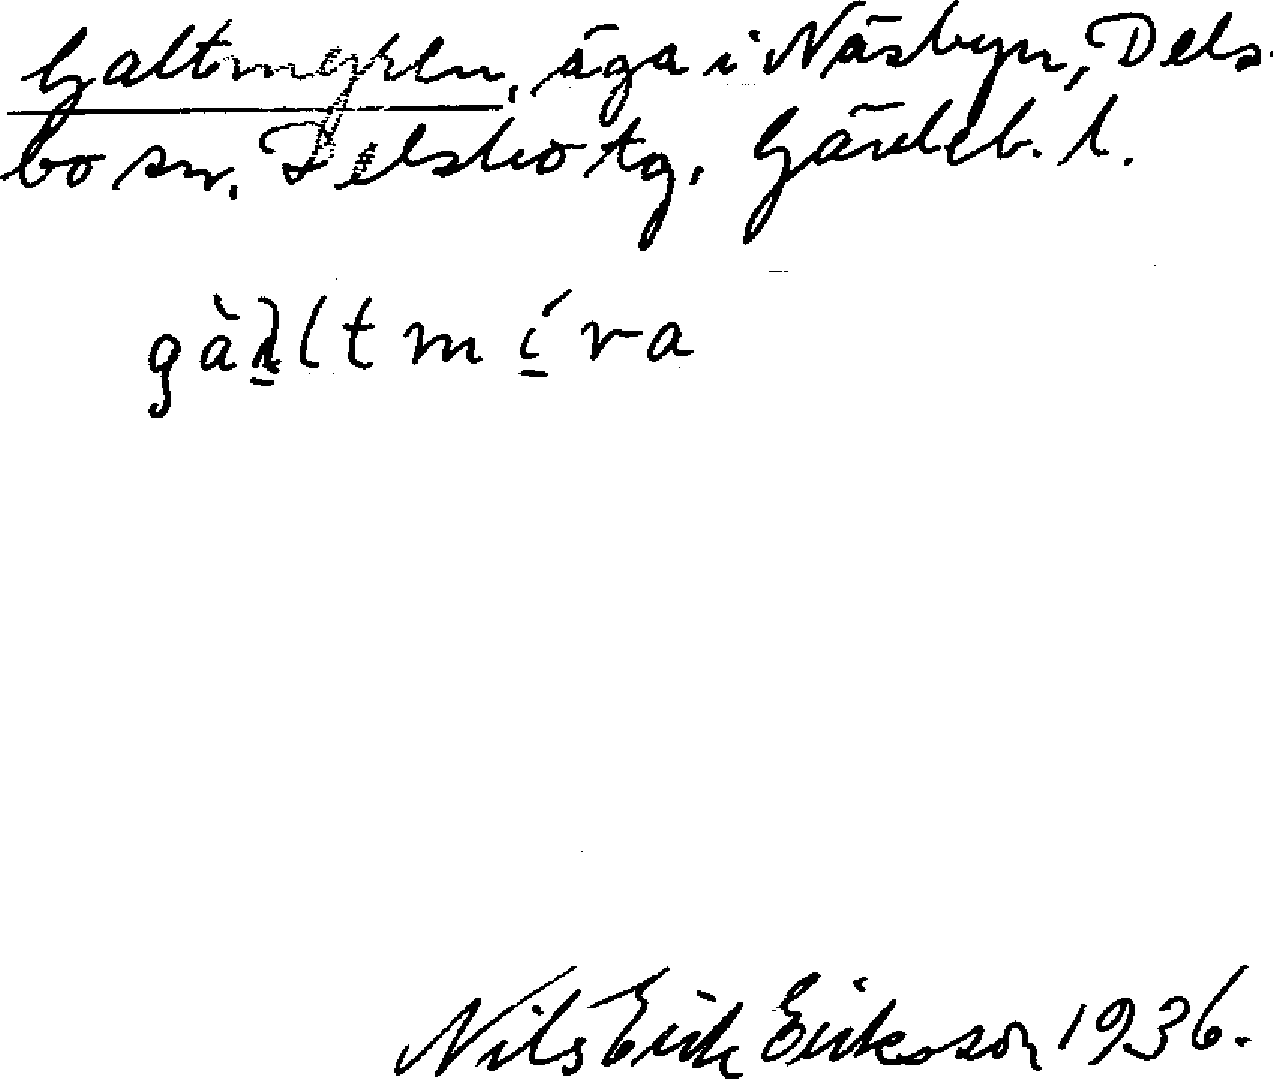 Galtmyren, äga i Näsbyn, Dels-
bo sn. Delsbo tg, Gävleb. l.
gàltmíra
Nils Erik Eriksson 1936.